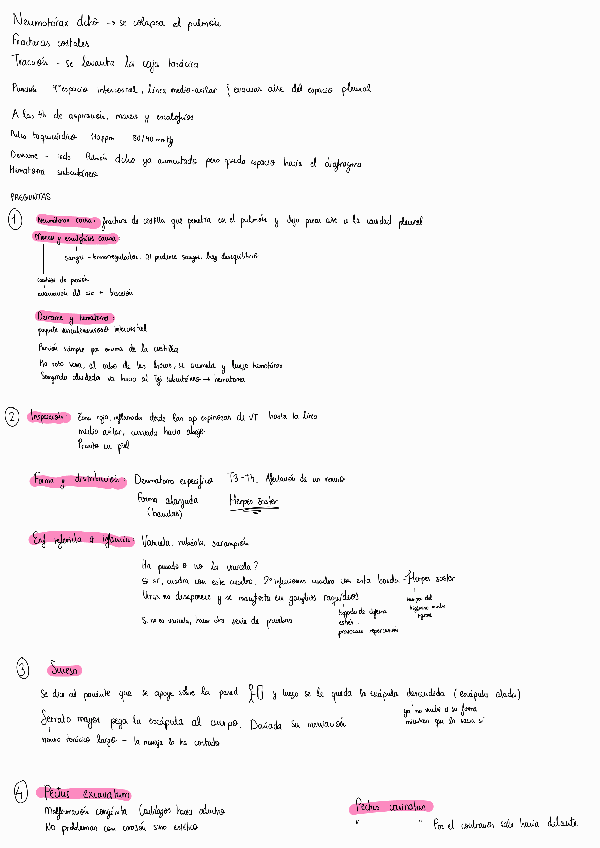 Neumotórax dcho → se colapsa el pulmón
Fracturas costales
Tracción - se levanta la caja torácica
Punción 4º espacio intercostal, línea medio-axilar } evacuar aire del espacio pleural
A las 4h de aspiración, mareos y escalofríos
Pulso taquicárdico 110 ppm 80/40 mmHg
Derrame - Pulmón dcho ya aumentado pero queda espacio hacia el diafragma
Hematoma subcutáneo
PREGUNTAS
1 Neumotórax causa: fractura de costilla que penetra en el pulmón y deja pasar aire a la cavidad pleural
Mareos y escalofríos causa:
sangre - termorregulador. Al perderse sangre, hay desequilibrio
cambios de presión
evacuación del aire +
Derrame y hematoma:
paquete intercostal
Punción siempre por encima de la costilla
Se rota vena, al cabo de las horas, se acumula y luego hematoma
Sangrado alrededor va hacia el tej subcutáneo → hematoma
2 Inspección: Zona roja, inflamada desde las ap espinosas de VT hasta la línea
medio axilar, curvada hacia abajo.
en piel
Forma y distribución: Dermatoma específico T3-T4. Afectación de un
Forma alargada Herpes Zoster
(bandas)
Enf referida a infancia: Varicela, rubéola, sarampión
Ha pasado o no la varicela?
Si sí, cuadra con este cuadro. 2º infecciones cuadra con esta banda - Herpes zoster
Virus no desaparece y se manifiesta en ganglios raquídeos
Si no es varicela, hacer otra serie de pruebas
bajada de defensas
estrés
provocan reaparición
3 Suceso
Se dice al paciente que se apoye sobre la pared y luego se le queda la escápula descuadrada (escápula alada)
Serrato mayor pega la escápula al cuerpo. Dañada su inervación
nervio torácico largo - la navaja lo ha cortado
4 Pectus excavatum
Malformación congénita Cartílagos hacia adentro
No problemas con corazón sino estético
Pectus carinatum
" " Por el contrario sale hacia delante